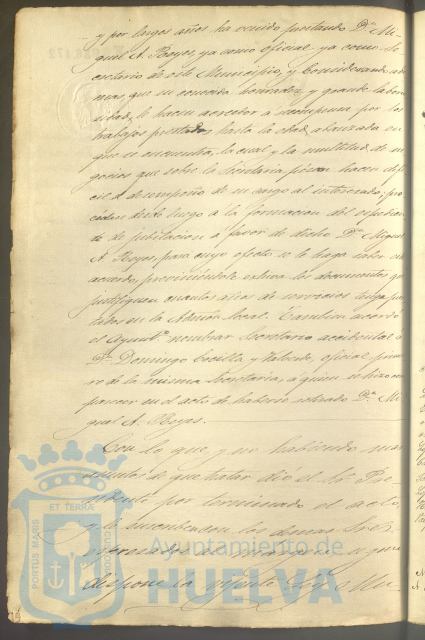 y por largos años ha venido prestando Dn. Mi-
guel A. Boyes, ya como oficial ya como Se-
cretario de este Municipio, y Considerando ade-
mas, que su conocida honradez y grande labo-
riosidad, lo hacen acreedor a recompensa por los
trabajos prestados, hasta la edad avanzada en
que se encuentra, la cual y la multitud de ne-
gocios que sobre la Secretaria pesan hacen difi-
cil el desempeño de su cargo al interesado; pro-
cedase desde luego á la formacion del espedien-
te de jubilacion a favor de dicho Dn. Miguel
A. Boyes, para cuyo efecto se le haga saber este
acuerdo, previniéndole exhiva los documentos que
justifiquen cuantos años de servicios tenga pres-
tados en la Admón local. Tambien acordó
el Ayuntº. nombrar Secretario accidental á
Dn. Domingo y Valverde, oficial prime-
ro de la misma Secretaria, á quien se hizo com-
parecer en el acto de haberse retirado Dn. Mi-
guel A. Boyes.
Con lo que, y no habiendo mas
asuntos de que tratar dió el Sr. Pre-
sidente por terminado el acto,
y lo suscriben los demas Sres.
de que
dispone la vigente Ley Mu-
PORTUS MARIS
ET TERRÆ
CUSTODIA
Ayuntamiento de
HUELVA